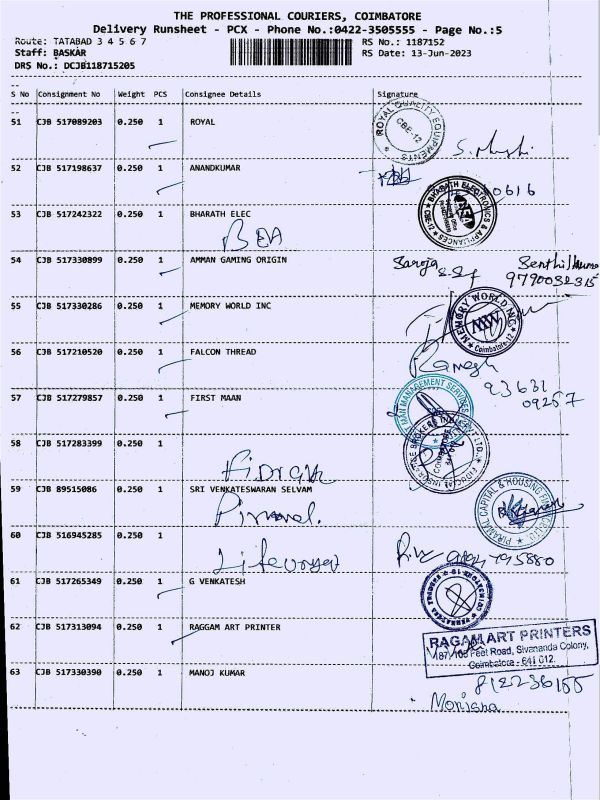 THE PROFESSIONAL COURIERS, COIMBATORE
Delivery Runsheet - PCX - Phone No.:0422-3505555 - Page No.:5
Route: TATABAD 3 4 5 6 7
RS No.: 1187152
Staff: BASKAR
RS Date: 13-Jun-2023
DRS No.: DCJB118715205
S No Consignment No Weight PCS Consignee Details Signature
51 CJB 517089203 0.250 1 ROYAL
ROYAL QUALITY EQUIPMENTS
CBE-12
52 CJB 517198637 0.250 1 ANANDKUMAR
0616
53 CJB 517242322 0.250 1 BHARATH ELEC
BHARATH ELECTRONICS & APPLIANCES CBE-12
54 CJB 517330899 0.250 1 AMMAN GAMING ORIGIN
Saroja
9790032315
55 CJB 517330286 0.250 1 MEMORY WORLD INC
MEMORY WORLD INC.
MW
Coimbatore-12
56 CJB 517210520 0.250 1 FALCON THREAD
Ramesh
93631
09257
57 CJB 517279857 0.250 1 FIRST MAAN
MAN MANAGEMENT SERVICES
58 CJB 517283399 0.250 1
59 CJB 89515086 0.250 1 SRI VENKATESWARAN SELVAM
Piramal.
PIRAMAL CAPITAL & HOUSING
60 CJB 516945285 0.250 1
61 CJB 517265349 0.250 1 G VENKATESH
62 CJB 517313094 0.250 1 RAGGAM ART PRINTER
RAGAM ART PRINTERS
187/105 Feet Road, Sivananda Colony,
Coimbatore - 641 012.
63 CJB 517330390 0.250 1 MANOJ KUMAR
8122236155
Monisha